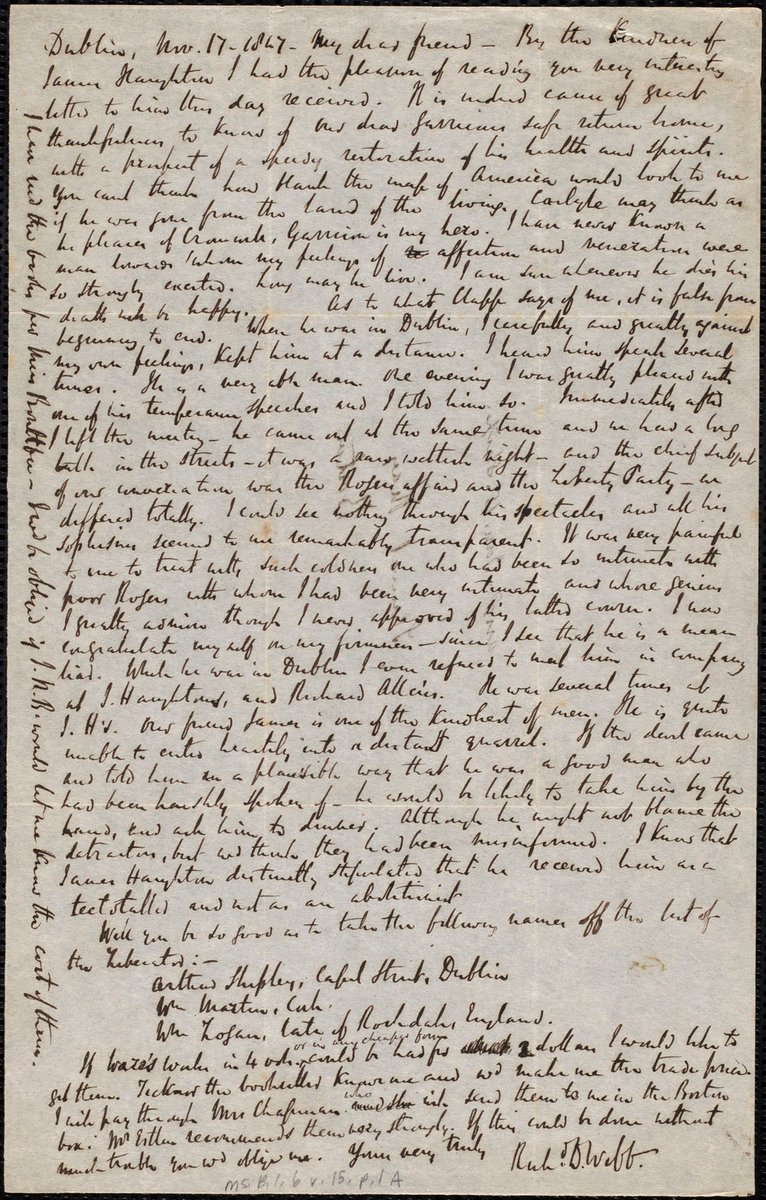 Dublin, Nov. 17 - 1847 - My dear friend - By the kindness of
James Haughton I had the pleasure of reading your very interesting
letter to him this day received. It is indeed cause of great
thankfulness to know of our dear Garrison's safe return home,
with a prospect of a speedy restoration of his health and spirits.
You can't think how blank the map of America would look to me
if he was gone from the land of the living. Carlyle may think as
he pleases of Cromwell, Garrison is my hero. I have never known a
man towards whom my feelings of affection and veneration were
so strongly excited. Long may he live. I am sure whenever he dies his
death will be happy. As to what Clapp says of me, it is false from
beginning to end. When he was in Dublin, I carefully, and greatly against
my own feelings, kept him at a distance. I heard him speak several
times. He is a very able man. One evening I was greatly pleased with
one of his temperance speeches and I told him so. Immediately after
I left the meeting - he came out at the same time and we had a long
talk in the streets - it was a raw wettish night - and the chief subject
of our conversation was the Rogers affair and the Liberty Party - we
differed totally. I could see nothing through his spectacles and all his
sophisms seemed to me remarkably transparent. It was very painful
to me to treat with such coldness one who had been so intimate with
poor Rogers with whom I had been very intimate and whose genius
I greatly admire though I never approved of his latter course. I now
congratulate myself on my firmness - since I see that he is a mean
liar. While he was in Dublin I even refused to meet him in company
at J. Haughton's, and Richard Allen's. He was several times at
J. H's. Our friend James is one of the kindest of men. He is quite
unable to enter heartily into a distant quarrel. If the devil came
and told him in a plausible way that he was a good man who
had been harshly spoken of - he would be likely to take him by the
hand, and ask him to dinner. Although he might not blame the
detractors, but wd think they had been misinformed. I know that
James Haughton distinctly stipulated that he received him as a
teetotaller and not as an abolitionist
Will you be so good as to take the following names off the list of
the Liberator: -
Arthur Shipley, Capel Street, Dublin
Wm Martin, Cork.
Wm Logan, late of Rochdale, England.
If Ware's works in 4 vols. or in any cheaper form could be had for 2 dollars I would like to
get them. Ticknor the bookseller knows me and wd make me the trade price
I will pay through Mrs Chapman who will send them to me in the Boston
box. Mr Estlin recommends them very strongly. If this could be done without
much trouble you wd oblige me. Yours very truly
Richd D. Webb.
I have recd the books for Miss - I wd be obliged if J. N. B. would let me know the cost of them.
Ms. B. 1. 6 v. 15, p. 1 A